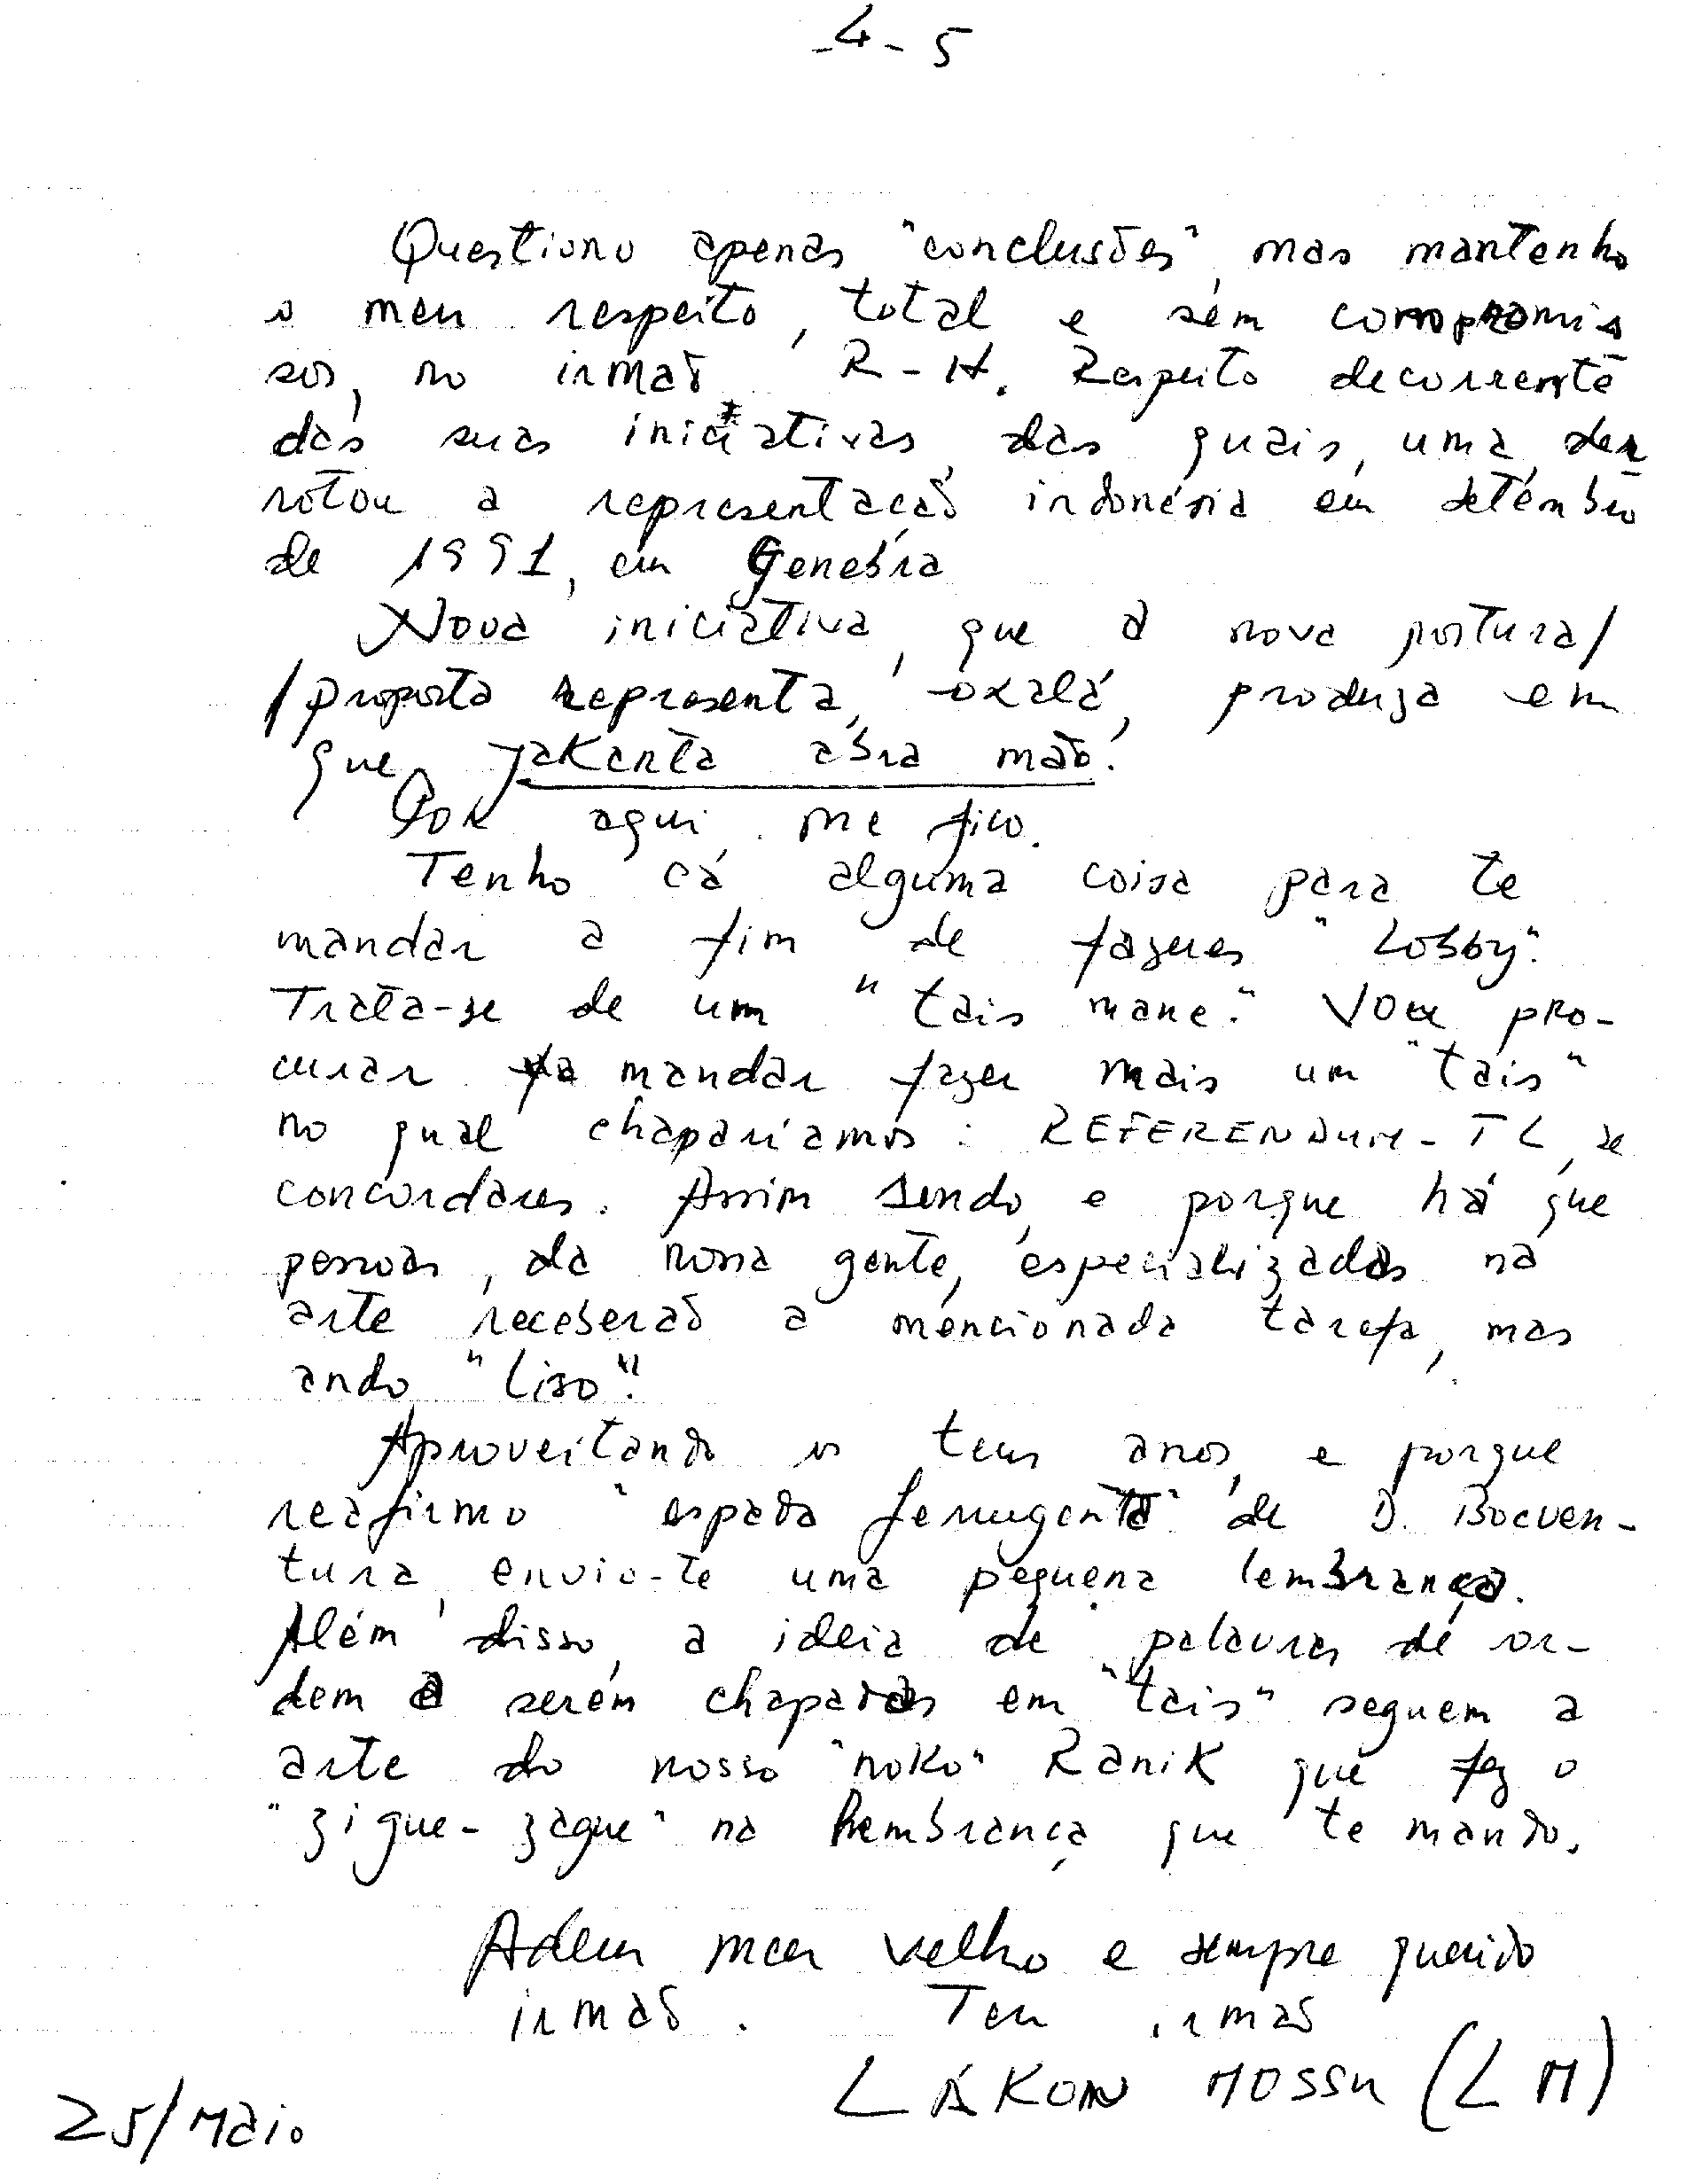 -4- 5
Questiono apenas "conclusões", mas mantenho
o meu respeito, total e sem compromis
sos, no irmão R-H. Respeito decorrente
das suas iniciativas, das quais, uma, der
rotou a representação indonésia em setembro
de 1991, em Genebra
Nova iniciativa, que a nova postura/
/proposta representa, oxalá, produza em
que Jakarta abra mão.
Por aqui me fico.
Tenho cá alguma coisa para te
mandar a fim de fazeres "Lobby".
Trata-se de um "tais mane". Vou pro-
curar mandar fazer mais um "tais"
no qual chapariamos: REFERENDUM-TL, se
concordares. Assim sendo, e porque há que
pessoas, da nossa gente, especializadas na
arte receberão a mencionada tarefa, mas
ando "liso".
Aproveitando os teus anos, e porque
reafirmo "espada ferrugenta" de D. Boaven-
tura, envio-te uma pequena lembrança.
Além disso, a ideia de palavras de or-
dem a serem chapadas em "tais" seguem a
arte do nosso "noko" Ranik que fez o
"zigue-zague" na lembrança que te mando.
Adeus meu velho e sempre querido
irmão. Teu irmão
LÁKON MOSSU (LM)
25/Maio